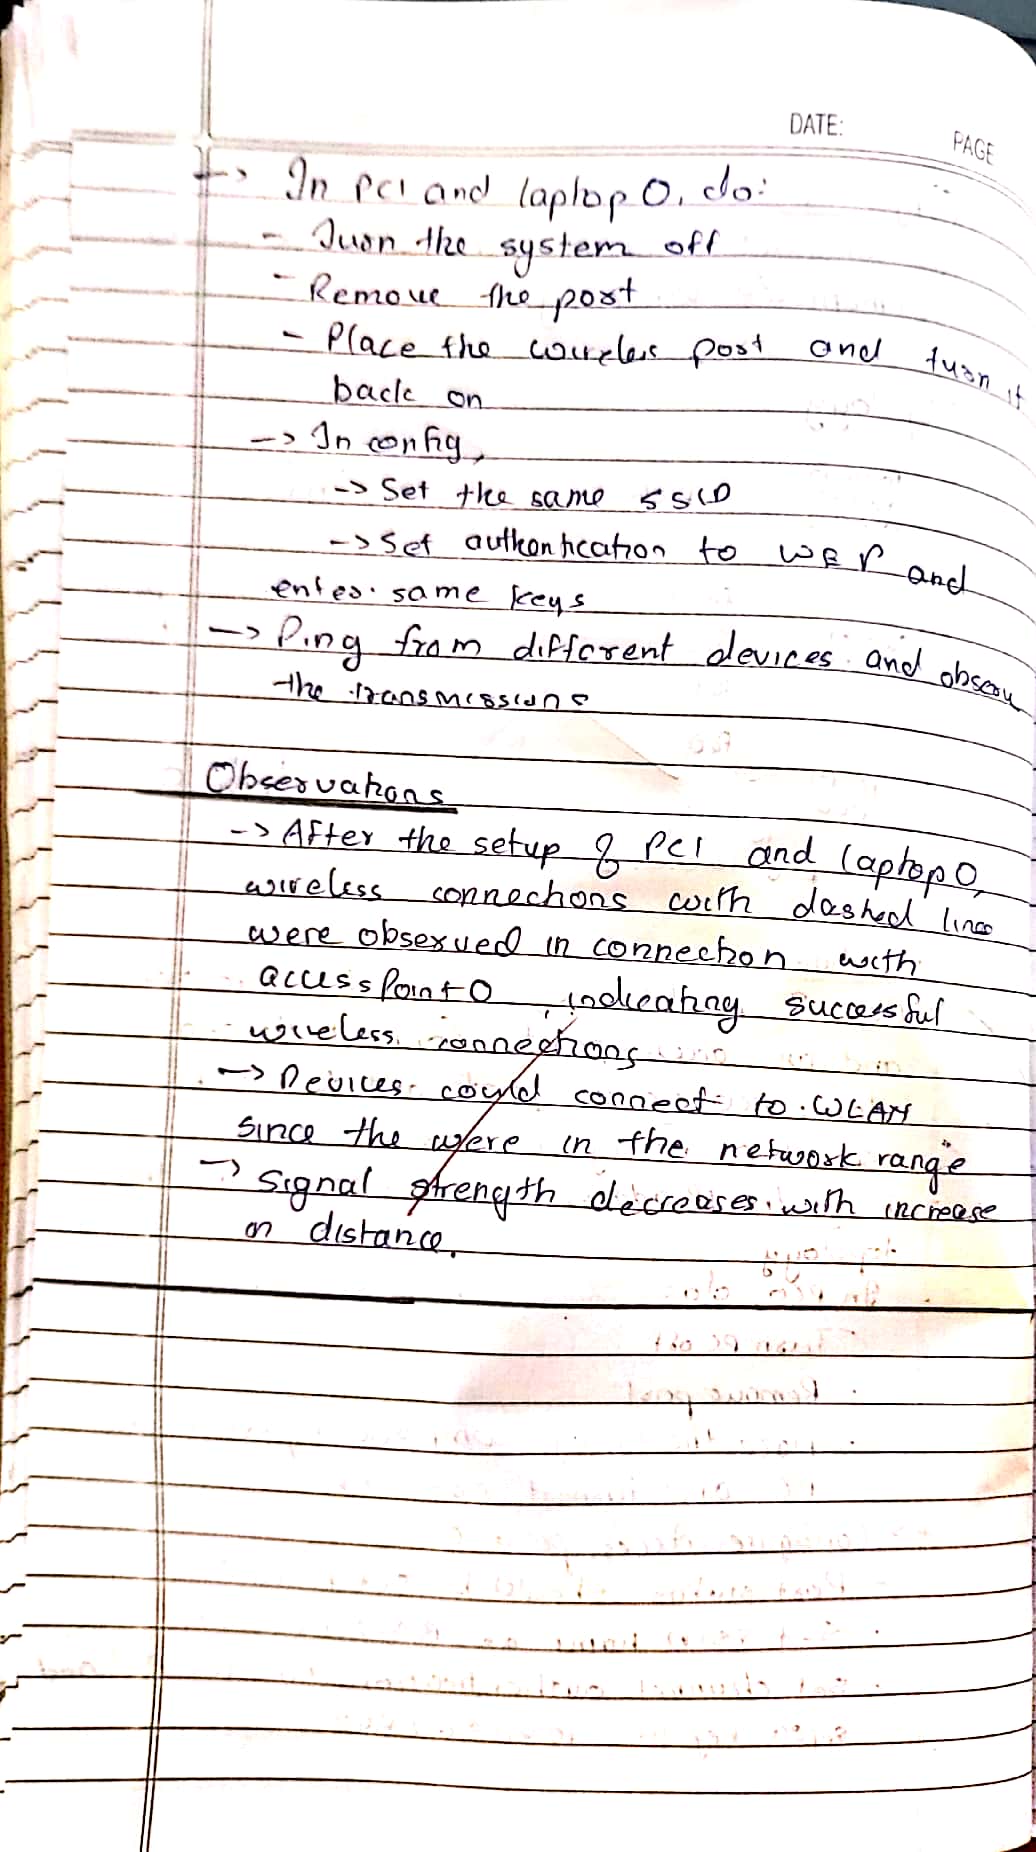 DATE:
PAGE
-> In PC1 and laptop 0, do:
- Turn the system off
- Remove the port
- Place the wireless port and turn it
back on
-> In config,
-> Set the same SSID
-> Set authentication to WEP and
enter same keys
-> Ping from different devices and observe
the transmissions
Observations
-> After the setup of PC1 and laptop 0,
wireless connections with dashed lines
were observed in connection with
access Point 0 indicating successful
wireless connections
-> Devices could connect to WLAN
since the were in the network range
-> Signal strength decreases with increase
in distance.